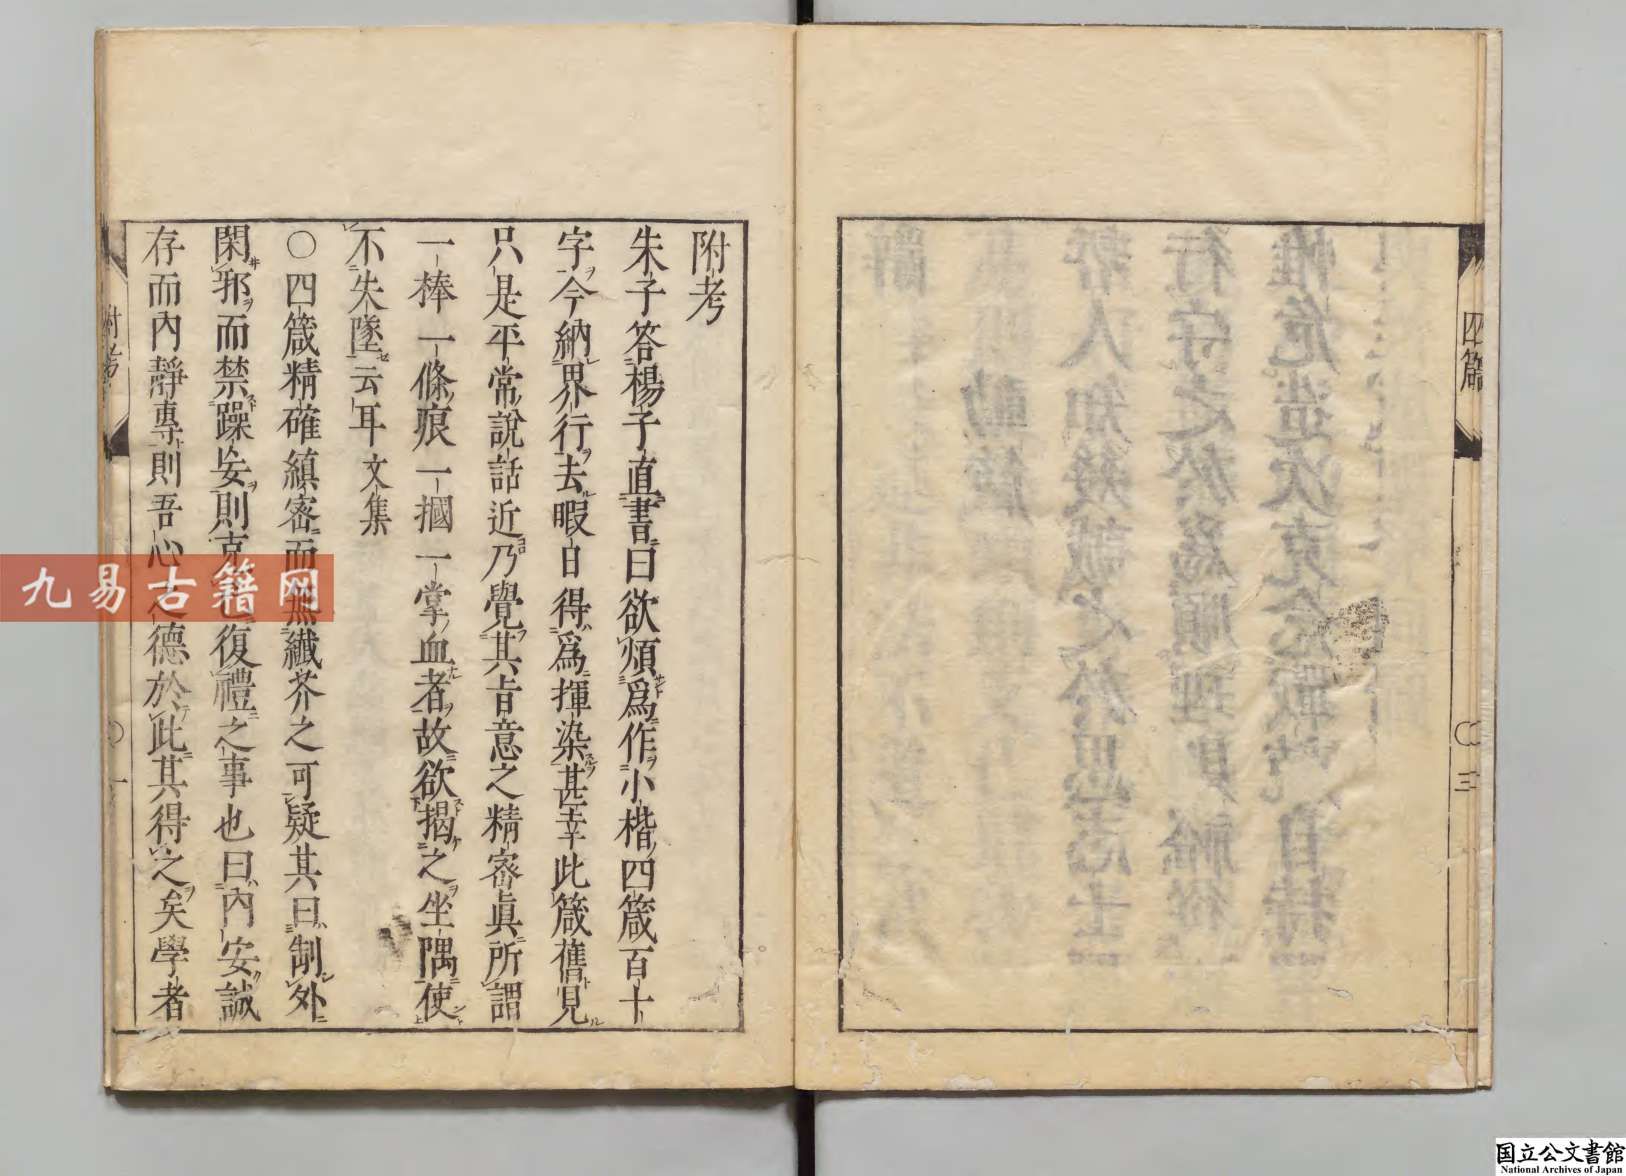 四箴
〇三
附考
朱子答楊子直書曰欲煩爲作小楷四箴百十
字今納界行去暇日得爲揮染甚幸此箴舊見
只是平常說話近乃覺其旨意之精審眞所謂
一棒一條痕一摑一掌血者故欲揭之坐隅使
不失墜云耳 文集
〇四箴精確縝密而無纖芥之可疑其曰制外
閑邪而禁躁妄則克復禮之事也曰內安誠
存而內靜專則吾心德於此其得之矣學者
附考
〇一
九易古籍网
国立公文書館
National Archives of Japan